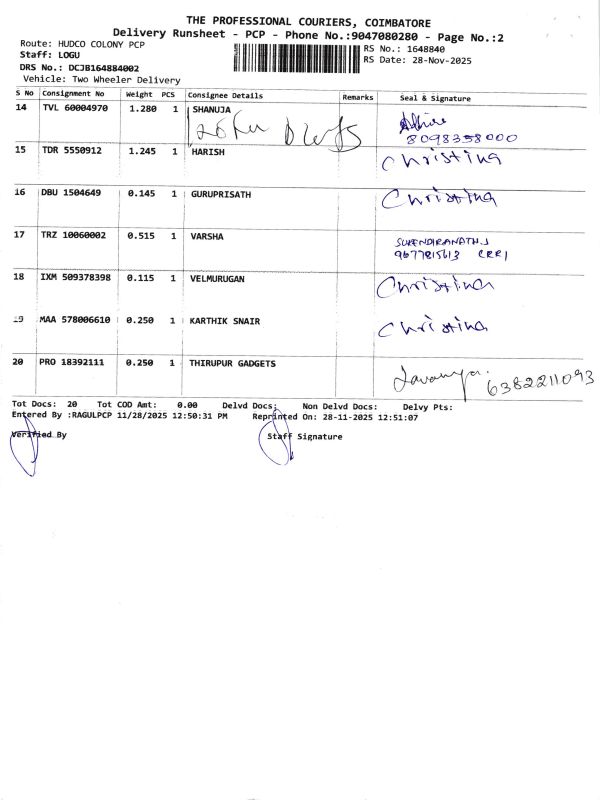 THE PROFESSIONAL COURIERS, COIMBATORE
Delivery Runsheet - PCP - Phone No.:9047080280 - Page No.:2
Route: HUDCO COLONY PCP
Staff: LOGU
DRS No.: DCJB164884002
Vehicle: Two Wheeler Delivery
RS No.: 1648840
RS Date: 28-Nov-2025
S No Consignment No Weight PCS Consignee Details Remarks Seal & Signature
14 TVL 60004970 1.280 1 SHANUJA
8098358000
15 TDR 5550912 1.245 1 HARISH Christina
16 DBU 1504649 0.145 1 GURUPRISATH Christina
17 TRZ 10060002 0.515 1 VARSHA SURENDIRANATH.J
9677815613
18 IXM 509378398 0.115 1 VELMURUGAN Christina
19 MAA 578006610 0.250 1 KARTHIK SNAIR Christina
20 PRO 18392111 0.250 1 THIRUPUR GADGETS Lavanya. 6382211093
Tot Docs: 20 Tot COD Amt: 0.00 Delvd Docs: Non Delvd Docs: Delvy Pts:
Entered By :RAGULPCP 11/28/2025 12:50:31 PM Reprinted On: 28-11-2025 12:51:07
Verified By Staff Signature